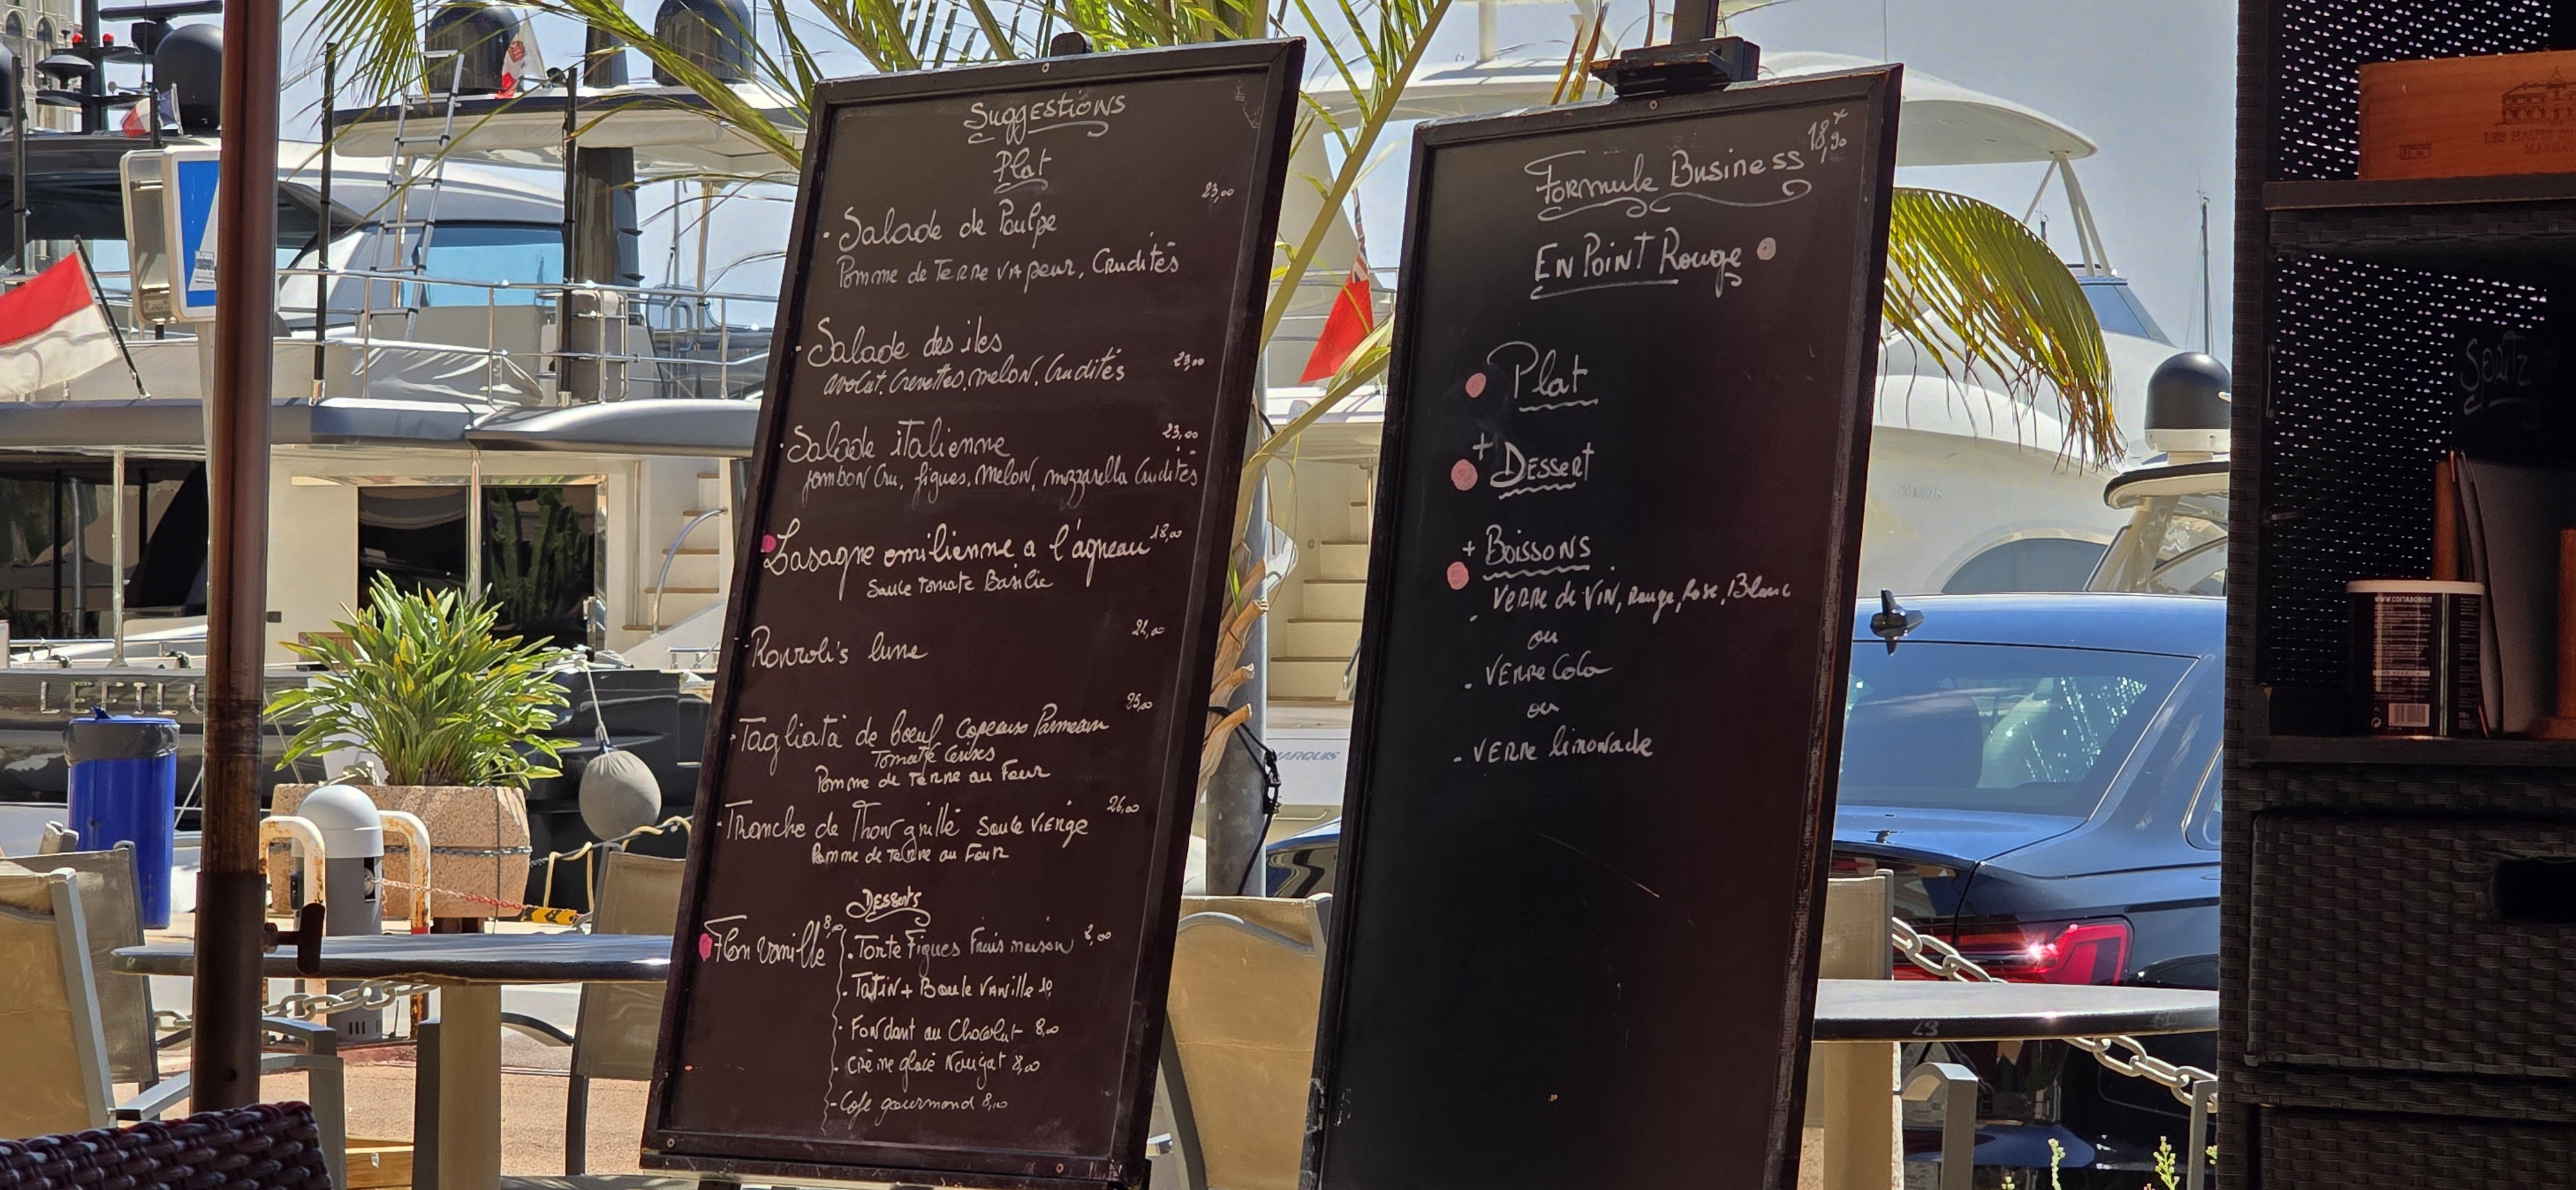 Suggestions
Plat
• Salade de Poulpe 23,00
Pomme de Terre vapeur, Crudités
• Salade des iles
avocat, Crevettes, melon, Crudités 23,00
• Salade italienne 23,00
jambon Cru, figues, Melon, mozzarella Crudités
Lasagne emilienne a l'agneau 18,00
Sauce Tomate Basilic
• Ravioli's lune 24,00
• Tagliata de bœuf Copeaux Parmesan 25,00
Tomate Cerises
Pomme de Terre au Four
• Tranche de Thon grillé Sauce Vierge 26,00
Pomme de Terre au Four
Desserts
Flan vanille 8,00
• Tarte Figues Frais maison
• Tatin + Boule Vanille 10
• Fondant au Chocolat 8,00
• Crème glacé Nougat 8,00
- Cafe gourmond 8,00
Formule Business 18,90
En Point Rouge
Plat
+ Dessert
+ Boissons
- Verre de Vin, Rouge, Rose, Blanc
ou
- Verre Cola
ou
- Verre limonade
MARQUIS
LES HAUTS
WWW.COSTADORO.IT